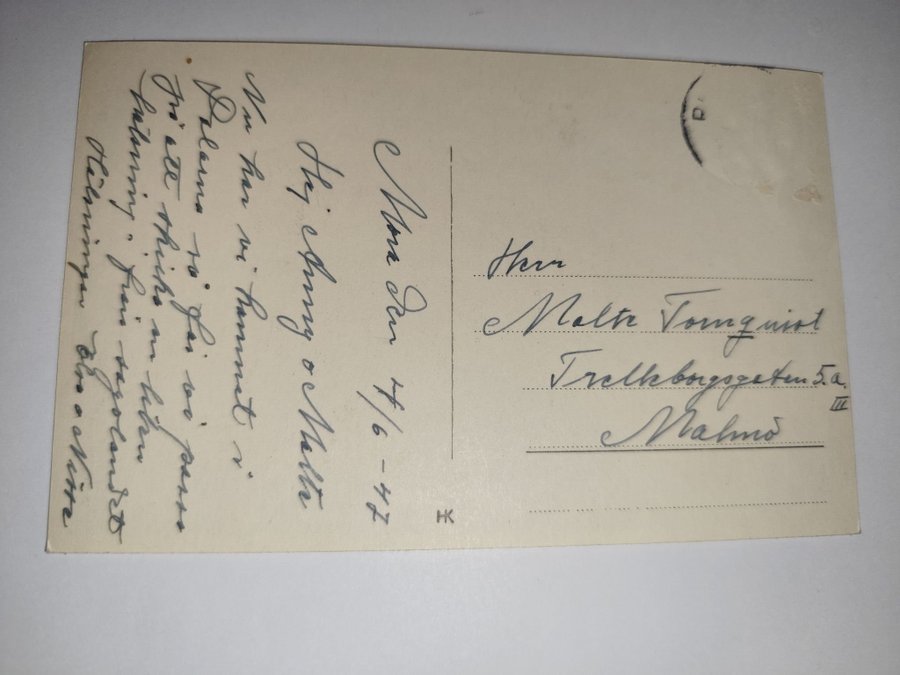 Mora den 4/6 - 47
Hej Anny o Malte
Nu har vi kommit i
Dalarna så får vi passa
på att skicka en liten
hälsning från sagolandet
Hälsningar Elsa o Nisse
Herr
Malte Tornquist
Trelleborgsgatan 5.a.
III
Malmö